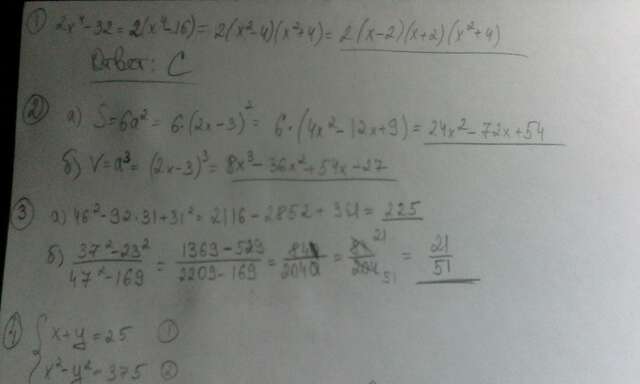 ① 2x⁴-32=2(x⁴-16)=2(x²-4)(x²+4)=2(x-2)(x+2)(x²+4)
Ответ: С
② а) S=6a²=6·(2x-3)²=6·(4x²-12x+9)=24x²-72x+54
б) V=a³=(2x-3)³=8x³-36x²+54x-27
③ а) 46²-92·31+31²=2116-2852+961=225
б) (37²-23²)/(47²-169)=(1369-529)/(2209-169)=840/2040=84/204=21/51
④ { x+y=25 ①
x²-y²=375 ②